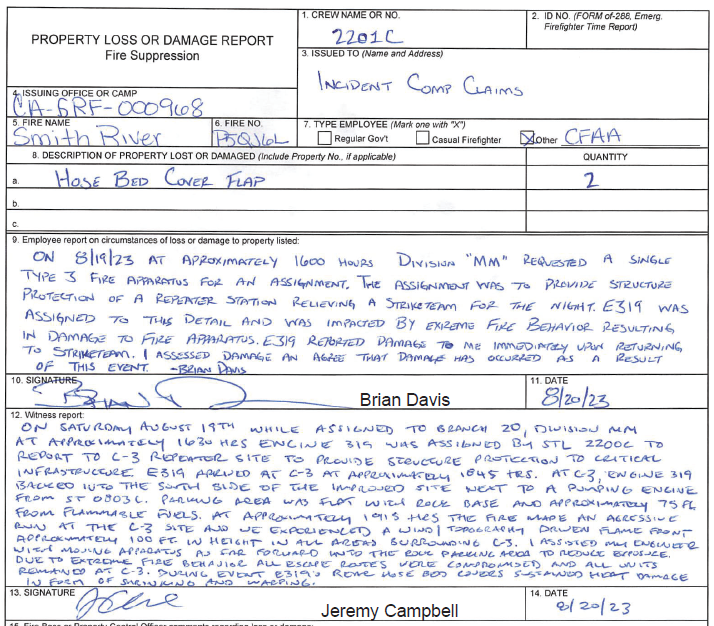 PROPERTY LOSS OR DAMAGE REPORT
Fire Suppression
1. CREW NAME OR NO.
2201C
2. ID NO. (FORM of-288, Emerg.
Firefighter Time Report)
3. ISSUED TO (Name and Address)
INCIDENT COMP CLAIMS
4. ISSUING OFFICE OR CAMP
CA-SRF-000968
5. FIRE NAME
Smith River
6. FIRE NO.
P5QJ6L
7. TYPE EMPLOYEE (Mark one with "X")
Regular Gov't
Casual Firefighter
Other CFAA
8. DESCRIPTION OF PROPERTY LOST OR DAMAGED (Include Property No., if applicable)
QUANTITY
a. HOSE BED COVER FLAP 2
b.
c.
9. Employee report on circumstances of loss or damage to property listed:
ON 8/19/23 AT APROXIMATELY 1600 HOURS DIVISION "MM" REQUESTED A SINGLE
TYPE 3 FIRE APPARATUS FOR AN ASSIGNMENT. THE ASSIGNMENT WAS TO PROVIDE STRUCTURE
PROTECTION OF A REPEATER STATION RELIEVING A STRIKETEAM FOR THE NIGHT. E319 WAS
ASSIGNED TO THIS DETAIL AND WAS IMPACTED BY EXTREME FIRE BEHAVIOR RESULTING
IN DAMAGE TO FIRE APPARATUS. E319 REPORTED DAMAGE TO ME IMMEDIATELY UPON RETURNING
TO STRIKETEAM. I ASSESSED DAMAGE AN AGREE THAT DAMAGE HAS OCCURRED AS A RESULT
OF THIS EVENT. -BRIAN DAVIS
10. SIGNATURE
Brian Davis
11. DATE
8/20/23
12. Witness report:
ON SATURDAY AUGUST 19TH WHILE ASSIGNED TO BRANCH 20, DIVISION MM
AT APPROXIMATELY 1630 HRS ENGINE 319 WAS ASSIGNED BY STL 2200C TO
REPORT TO C-3 REPEATER SITE TO PROVIDE STRUCTURE PROTECTION TO CRITICAL
INFRASTRUCTURE. E319 ARRIVED AT C-3 AT APPROXIMATELY 1845 HRS. AT C-3, ENGINE 319
BACKED INTO THE SOUTH SIDE OF THE IMPROVED SITE NEXT TO A PUMPING ENGINE
FROM ST 0803C. PARKING AREA WAS FLAT WITH ROCK BASE AND APPROXIMATELY 75 FT
FROM FLAMMABLE FUELS. AT APPROXIMATELY 1915 HRS THE FIRE MADE AN AGRESSIVE
RUN AT THE C-3 SITE AND WE EXPERIENCED A WIND/TOPOGRAPHY DRIVEN FLAME FRONT
APPROXIMATELY 100 FT IN HEIGHT IN ALL AREAS SURROUNDING C-3. I ASSISTED MY ENGINEER
WITH MOVING APPARATUS AS FAR FORWARD INTO THE ROCK PARKING AREA TO REDUCE EXPOSURE.
DUE TO EXTREME FIRE BEHAVIOR ALL ESCAPE ROUTES WERE COMPROMISED AND ALL UNITS
REMAINED AT C-3. DURING EVENT E319'S REAR HOSE BED COVERS SUSTAINED HEAT DAMAGE
IN FORM OF SHRINKING AND WARPING.
13. SIGNATURE
Jeremy Campbell
14. DATE
8/20/23